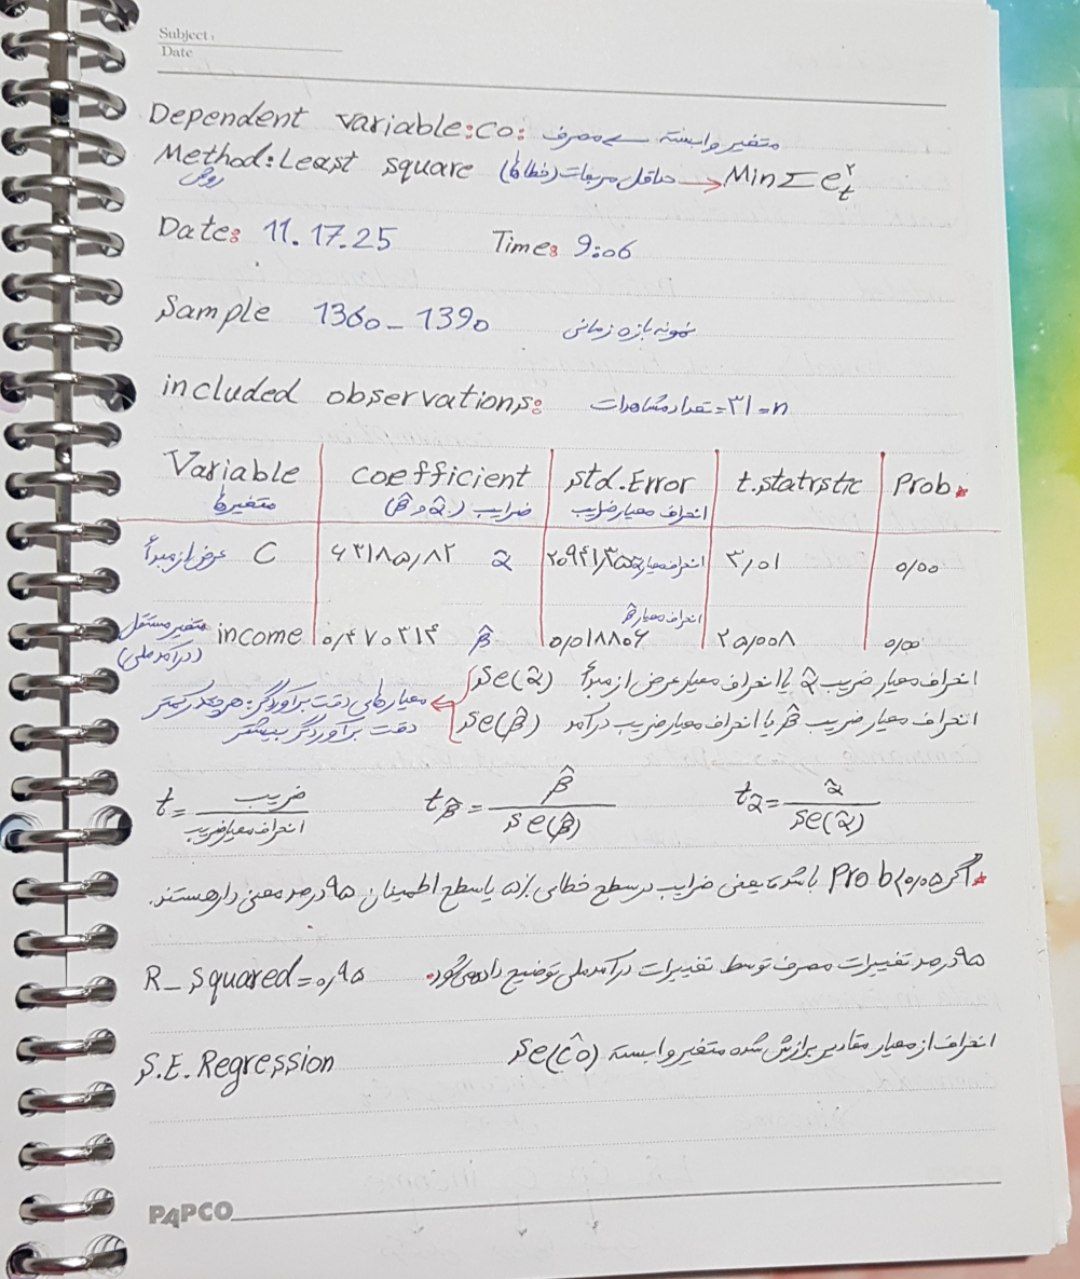 Subject:
Date
Dependent variable: Co: متغیر وابسته مصرف
Method: Least square حداقل مربعات (خطاها) → Min Σ e_t^۲
روش
Date: 11.17.25 Time: 9:06
Sample 1360 _ 1390 نمونه بازه زمانی
included observations: تعداد مشاهدات = ۳۱ = n
Variable coefficient std.Error t.statrstic Prob.
متغیرها ضرایب (α̂ و β̂) انحراف معیار ضرایب
عرض از مبدأ C ۶۳۱۸۵٫۸۲ α̂ انحراف معیار α̂ ۳٫۰۱ ۰٫۰۰
انحراف معیار β̂
متغیر مستقل income ۰٫۴۷۰۳۱۴ β̂ ۰٫۰۱۸۸۰۶ ۲۵٫۰۰۸ ۰٫۰۰
(درآمد ملی)
انحراف معیار ضریب α̂ یا انحراف معیار عرض از مبدأ se(α̂)
انحراف معیار ضریب β̂ یا انحراف معیار ضریب درآمد se(β̂)
معیارهای دقت برآوردگر: هرچقدر کمتر
دقت برآوردگر بیشتر
t = ضریب / انحراف معیار ضریب t_β̂ = β̂ / se(β̂) t_α̂ = α̂ / se(α̂)
اگر Prob < ۰٫۰۵ باشد یعنی ضرایب در سطح خطای ۵٪ یا سطح اطمینان ۹۵ درصد معنی دار هستند.
R_ squared = ۰٫۹۵ ۹۵ درصد تغییرات مصرف توسط تغییرات درآمد ملی توضیح داده می‌شود.
S.E. Regression انحراف از معیار مقادیر برازش شده متغیر وابسته se(ĉo)
PAPCO